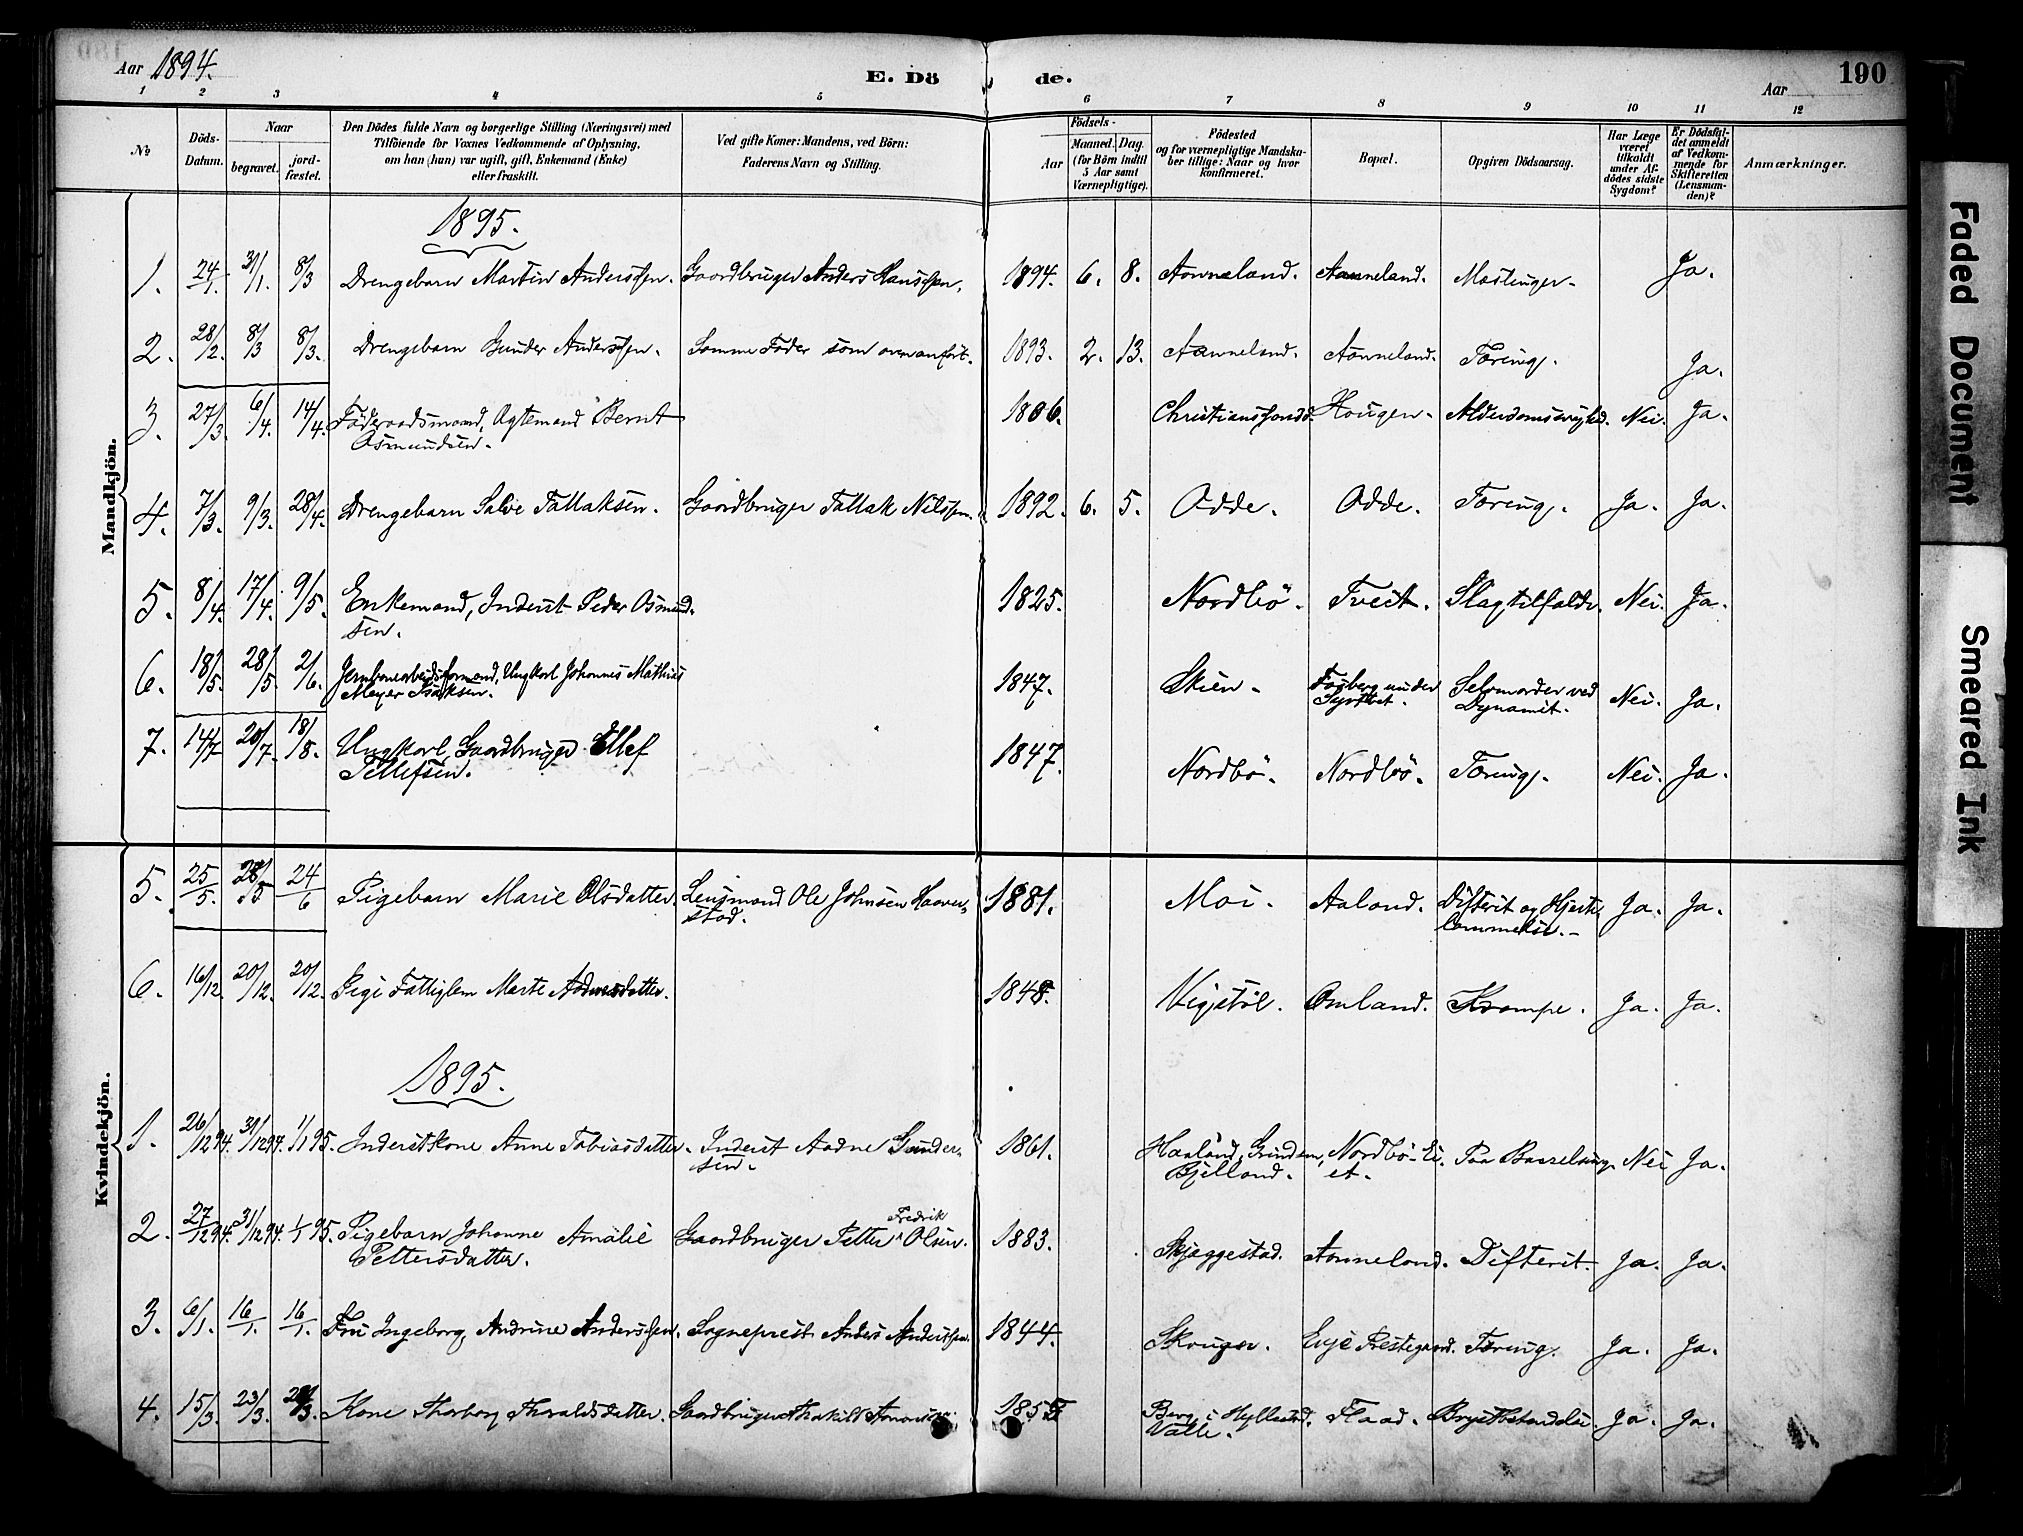 Aar 1894.
E. Dö de.
Aar
190
1 2 3 4 5 6 7 8 9 10 11 12
No
Döds-Datum.
Naar
begravet.
jord-fæstet.
Den Dödes fulde Navn og borgerlige Stilling (Næringsvei) med
Tilföiende for Voxnes Vedkommende af Oplysning,
om han (hun) var ugift, gift, Enkemand (Enke)
eller fraskilt.
Ved gifte Koner: Mandens, ved Börn:
Faderens Navn og Stilling.
Födsels-
Aar
Maaned. Dag.
(for Börn indtil
5 Aar samt
Værnepligtige).
Födested
og for værnepligtige Mandska-
ber tillige: Naar og hvor
konfirmeret.
Bopæl.
Opgiven Dödsaarsag.
Har Læge
været
tilkaldt
under Af-
dödes sidste
Sygdom?
Er Dödsfal-
det anmeldt
af Vedkom-
mende for
Skifteretten
(Lensman-
den)?
Anmærkninger.
Mandkjön.
1895.
1. 24/1. 31/1. 8/3 Drengebarn Martin Anderssen. Gaardbruger Anders Hanssen. 1894. 6. 8. Aanneland. Aanneland. Mæslinger. Ja.
2. 28/2. 8/3 8/3. Drengebarn Gunder Anderssen. Samme Fader som ovenanført. 1893. 2. 13. Aanneland. Aanneland. Tæring. Ja.
3. 27/3. 6/4. 14/4. Föderaadsmand, Ægtemand Bernt 1806. Christianssand. Haugen. Alderdomssvaghed. Nei. Ja.
Osmundsen.
4. 7/3. 9/3. 28/4. Drengebarn Salve Tallaksen. Gaardbruger Tallak Nilssen. 1892. 6. 5. Odde. Odde. Tæring. Ja. Ja.
5. 8/4. 17/4. 9/5. Enkemand, Inderst Peder Osmund- 1825. Nordbö. Tveit. Slagtilfælde. Nei. Ja.
sen.
6. 18/5. 28/5. 2/6. Jernbanearbeidsformand, Ungkarl Johannes Mathias 1847. Skien. under Selvmorder ved Nei. Ja.
Meyer Isaksen. Dynamit.
7. 14/7 20/7. 18/8. Ungkarl, Gaardbruger Ellef 1847. Nordbö. Nordbö. Tæring. Nei. Ja.
Tellefsen.
Kvindekjön.
5. 25/5. 28/5 24/6 Pigebarn Marie Olsdatter. Lensmand Ole Johnsen Haaver- 1881. Moi. Aaland. Difterit og Hjerte- Ja. Ja.
stad. lammelse.
6. 16/12. 20/12. 20/12. Pige Fattiglem Marte Aadnesdatter. 1848. Vigstöl. Omland. Krampe. Ja. Ja.
1895.
1. 26/12 94. 31/12 94. 1/1 95. Inderstkone Anne Tobiasdatter. Inderst Aadne Gunder- 1861. Haaland, Grindem, Nordbö-Ei- Paa Barselseng. Nei Ja.
sen. Bjelland. et.
2. 27/12 94. 31/12 94. 1/1 95. Pigebarn Johanne Amalie Gaardbruger Petter Fredrik Olsen. 1883. Skjæggestad. Aanneland. Difterit. Ja. Ja.
Pettersdatter.
3. 6/1. 16/1. 16/1. Fru Ingeborg Andrine Anderssen. Sogneprest Anders Anderssen. 1844. Skauger. Evje Prestegaard. Tæring. Ja. Ja.
4. 15/3. 23/3. Kone Thorborg Thoraldsdatter. Gaardbruger 185 Berg i Hyllestad, Flaad. Brystbetændelse. Ja. Ja.
Valle.
Faded Document
Smeared Ink